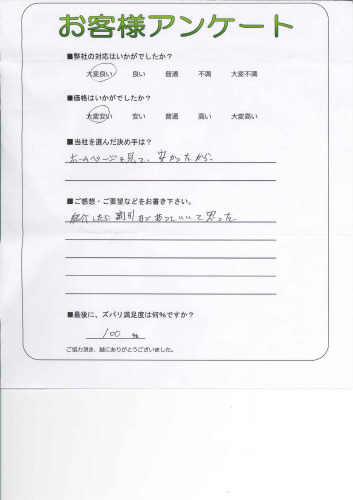 お客様アンケート
■弊社の対応はいかがでしたか？
大変良い 良い 普通 不満 大変不満
■価格はいかがでしたか？
大変安い 安い 普通 高い 大変高い
■当社を選んだ決め手は？
ホームページを見て、安かったから。
■ご感想・ご要望などをお書き下さい。
紹介したら割引があっていいて思った
■最後に、ズバリ満足度は何%ですか？
100 %
ご協力頂き、誠にありがとうございました。